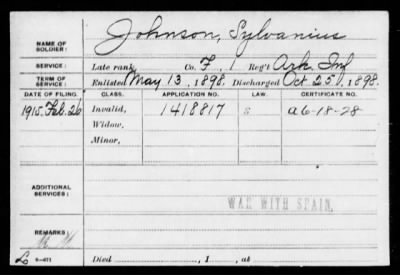 Johnson, Sylvanius
NAME OF SOLDIER:
SERVICE: Late rank, Co. F, 1 Reg't Ark Inf
TERM OF SERVICE: Enlisted May 13, 1898. Discharged Oct 25, 1898.
DATE OF FILING. CLASS. APPLICATION NO. LAW. CERTIFICATE NO.
1915. Feb. 26 Invalid, 1418817 S A 6-18-28
Widow,
Minor,
ADDITIONAL SERVICES:
WAR WITH SPAIN.
REMARKS:
Died , 1 , at